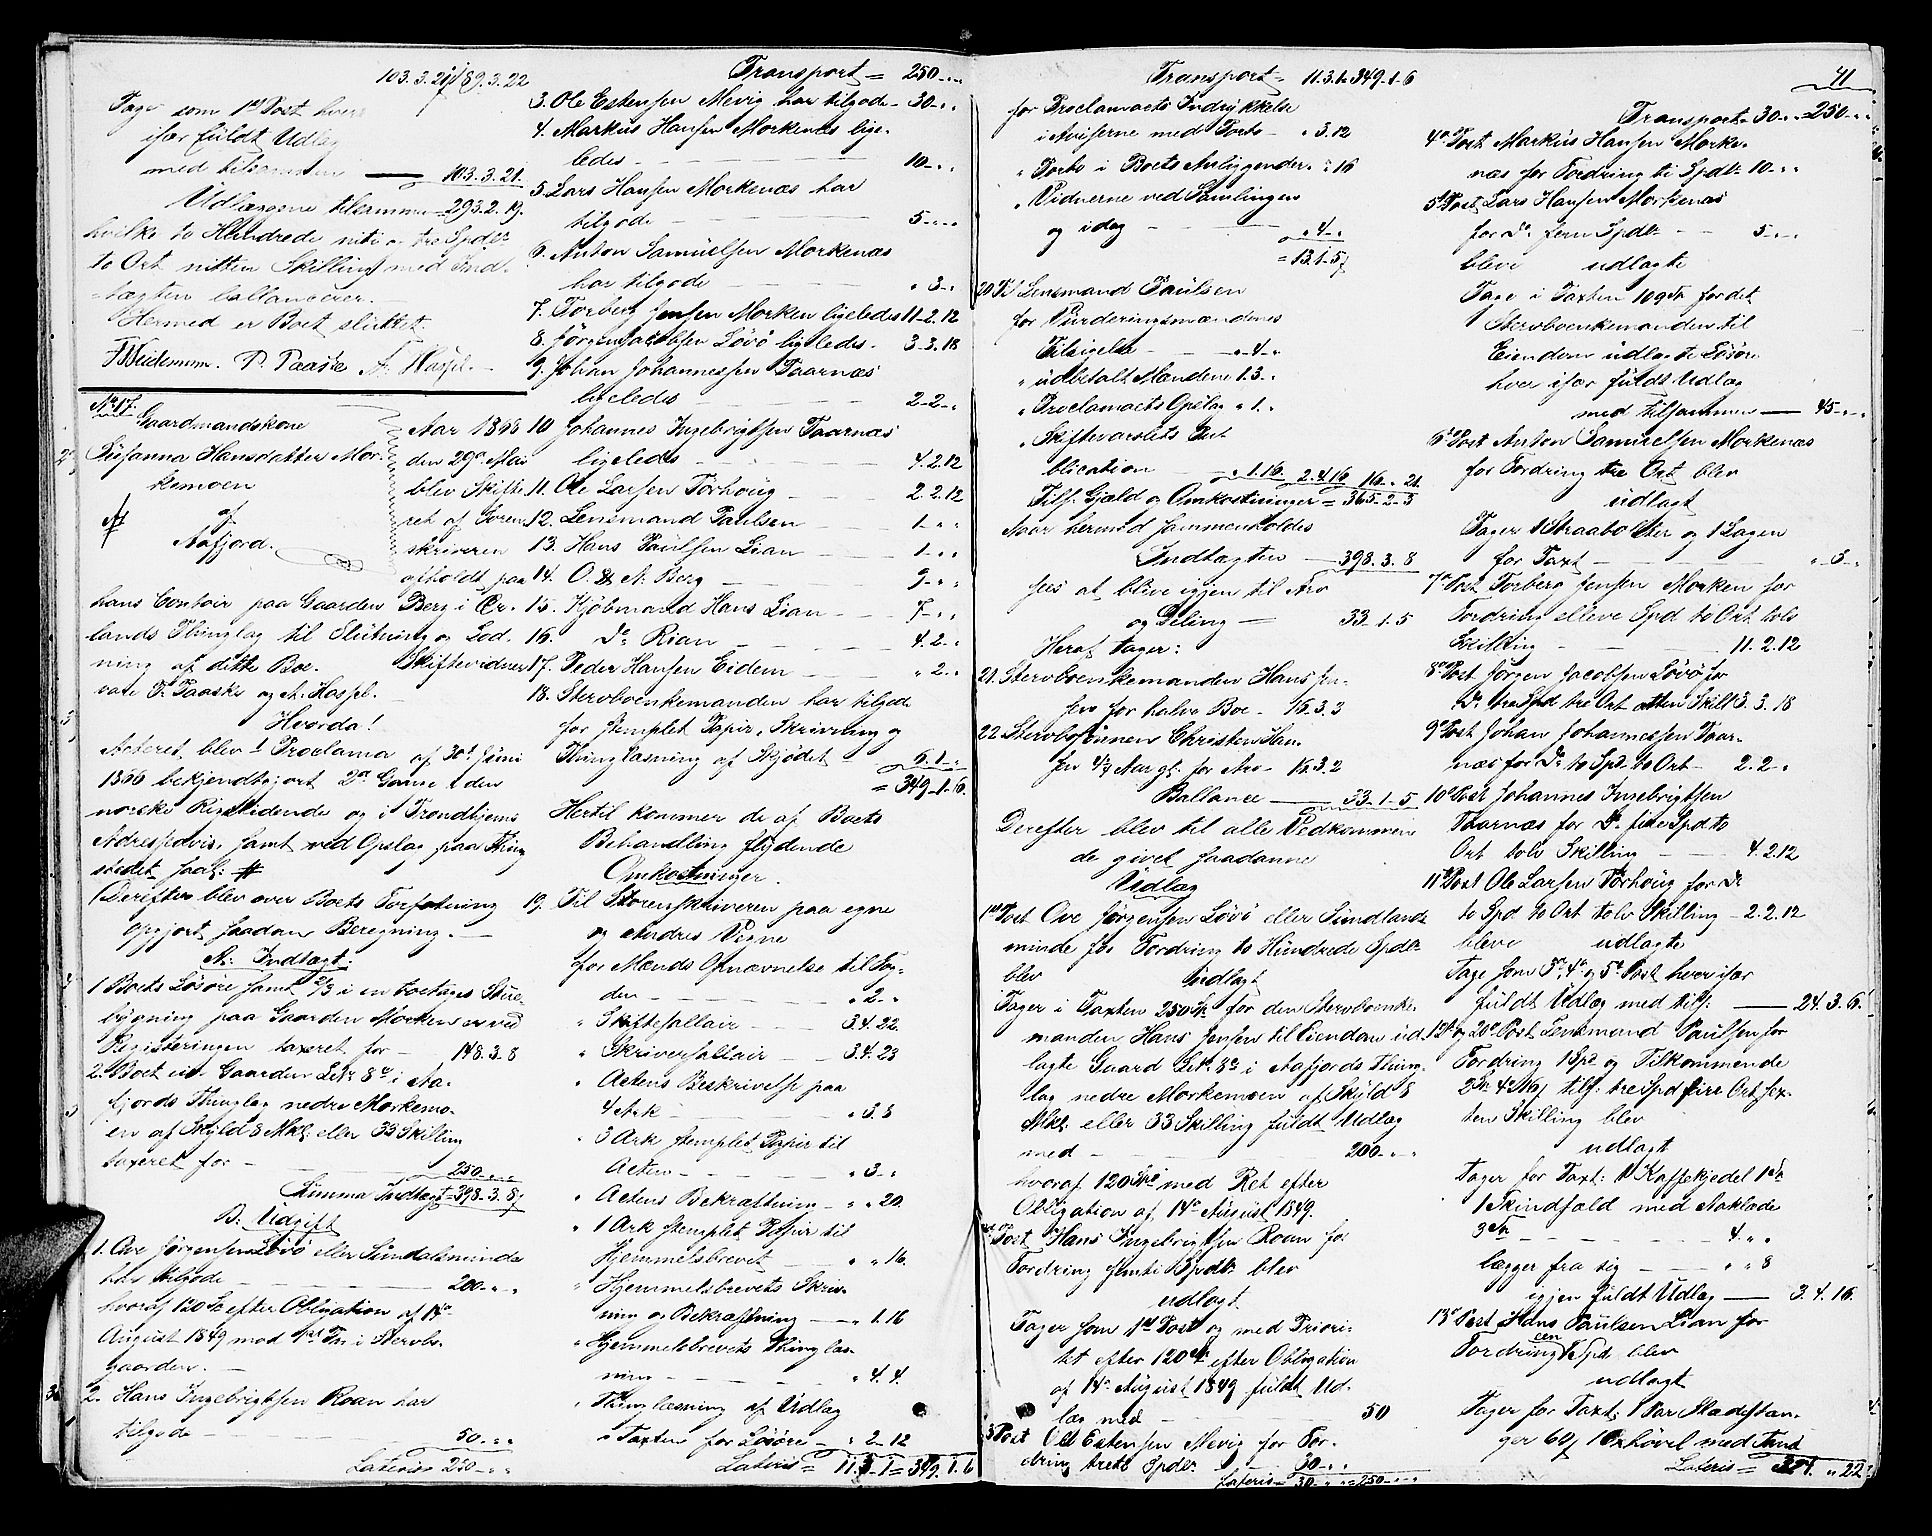 103.3.21 189.3.22
Tager som 1ste Post hver
især fuldt Udlæg
med tilsammen — 103.3.21.
Udlæggene tilsammen = 293.2.19.
hvilke to Hundrede niti og tre Spdlr
to Ort nitten Skilling med Ind-
tægten ballancerer.
Hermed er Boet sluttet.
P. Paaske A. Hospl.
No 17.
Gaardmandskone
Susanna Hansdatter Mor-
kemoen
af
Aafjord.
Aar 1868
den 29de Mai
blev Skifte-
ret af Soren-
skriveren
afholdt paa
hans Contoir paa Gaarden Berg i Ør-
lands Thinglag til Slutning og Lod-
ning af dette Boe. Skiftevidner
vare P. Paaske og A. Hospl.
Hvorda!
Acteret blev 1 Proclama af 30te Juni
1866 bekjendtgjort 2de Gange i den
norske Rigstidende og i Trondhjems
Adresseavis, samt ved Opslag paa Thing
stedet saal: #
Derefter blev over Boets Forfatning
opgjort saadan Beregning. —
A: Indtægt:
1 Boets Løsøre samt 2/3 i en toetages Stue-
bygning paa Gaarden Morken er ved
Registeringen taxeret for — 148.3.8
2. Boet eier Gaarden Lit: 8a i Aa-
fjords Thinglag nedre Morkemo-
en af Skyld 8 Mkl: eller 33 Skilling
taxeret for — 250 - " - "
Summa Indtægt = 398.3.8
B: Udgift
1. Ove Jørgensen Løvø eller Sundalsminde
har tilgode — 200 - " - "
hvoraf 120 Sp efter Obligation af 14de
August 1849 med 1ste Pr: i Stervbo-
gaarden. —
2. Hans Ingebrigtsen Roan har
tilgode — 50. - " - "
Lateris 250 - " - "
Transport = 250 - " - "
3. Ole Estensen Mevig har tilgode - 30 - " - "
4. Markus Hansen Morkenæs lige-
ledes — 10 - " - "
5. Lars Hansen Morkenæs har
tilgode — 5 - " - "
6. Anton Samuelsen Morkenæs
har tilgode — " 3 - "
7. Torberg Jensen Morken ligeledes 11-2.12
8. Jørgen Jacobsen Løvø ligeledes - 3-3.18
9. Johan Johannessen Taarnæs
ligeledes — 2-2-"
10 Johannes Ingebrigtsen Taarnæs
ligeledes — 4.2.12
11. Ole Larsen Torhoug — 2.2.12
12. Lensmand Paulsen — 1 - " "
13. Hans Paulsen Lian — 1 - " "
14. O. & A. Berg — 9 - " "
15. Kjøbmand Hans Lian — 7 - " "
16. Do Rian — 4.2 - "
17. Peder Hansen Eidem — " 2 - "
18. Stervboenkemanden har tilgode
for stemplet Papir, Skrivning og
Thinglæsning af Skjødet 6.1 - "
= 349.1.16.
Hertil kommer de af Boets
Behandling flydende
Omkostninger.
19. Til Sorenskriveren paa egne
og Andres Vegne
for Mænds Opnævnelse til Fog-
den — " 2 - "
" Skiftesallair — 3.4.22.
" Skriversallair — 3.4.23
" Actens Beskrivelse paa
4 Ark — " 3.3
" 3 Ark stemplet Papir til
Acten — " 3 - "
" Actens Bekræftning — " " 20.
" 1 Ark stemplet Papir til
Hjemmelsbrevet — " " 16.
" Hjemmelsbrevets Skriv-
ning og Bekræftning — " 1.16
" Hjemmelsbrevets Thinglæs-
ning — " 4.4.
" Thinglæsning af Udlæg
" Taxten for Løsøre - " 2-12
Lateris = 11.3.1 = 349.1.6
Transport = 11.3.1 = 349.1.6
for Proclamaets Indrykkelse
i Aviserne med Porto - " 3.12
" Porto i Boets Anliggender - " 16
" Vidnerne ved Samlingen
og idag — " 4 - "
= 13.1.5
20 Til Lensmand Paulsen
for Vurderingsmændenes
Tilsigelse — " 4 - "
" udbetalt Mændene 1.3 - "
" Proclamaets Opslag " 1. "
" Skiftevarslets Pub-
blication — " 1.16 2.4.16 16. " 21.
Tils. Gjæld og Omkostninger = 365.2.3
Naar hermed sammenholdes
Indtægten — 398.3.8
sees at blive igjen til Arv
og Deling — 33.1.5
Heraf tager:
21. Stervboenkemanden Hans Jen-
sen for halve Boe - 16.3.3
22. Stervbosønnen Christen Han-
sen 47 Aar gl. for Arv - 16.3.2
Ballance — 33.1.5
Derefter blev til alle Vedkommen-
de givet saadanne
Udlæg
1ste Post Ove Jørgensen Løvø eller Sundlands
minde for Fordring to Hundrede Spdlr
blev udlagt
Tager i Taxten 250 Sp for den Stervboenke-
manden Hans Jensen til Eiendom ud-
lagte Gaard Lit: 8a i Aafjords Thing-
lag nedre Morkemoen af Skyld 8
Mkl: eller 33 Skilling fuldt Udlæg
med — 200 - " "
hvoraf 120 Spd med Ret efter
Obligation af 14de August 1849.
2den Post Hans Ingebrigtsen Roan for
Fordring femti Spdlr blev
udlagt
Tager som 1ste Post og med Priori-
tet efter 120 Sp efter Obligation
af 14de August 1849 fuldt Ud-
læg med — 50
3die Post Ole Estensen Mevig for For-
dring treti Spdlr — 30 " "
Lateris = 30 - " " = 250 - " "
41
Transport = 30 - " = 250 - " "
4de Post Markus Hansen Morke-
næs for Fordring ti Spdlr 10 - " "
5te Post Lars Hansen Morkenæs
for Do fem Spdlr — 5 - " "
bleve udlagte
Tage i Taxten 109 Sp for det
Stervboenkemanden til
Eiendom udlagte Løsøre
hver især fuldt Udlæg
med tilsammen — 45 - " "
6te Post Anton Samuelsen Morkenæs
for Fordring tre Ort blev
udlagt
Tager 1 Straabolster og 1 Lagen
for Taxt — " 3 - "
7de Post Torberg Jensen Morken for
Fordring elleve Spd to Ort tolv
Skilling — 11.2.12
8de Post Jørgen Jacobsen Løvø for
Do tre Spd tre Ort atten Skill 3.3.18
9de Post Johan Johannessen Taar-
næs for Do to Spd to Ort - 2.2 - "
10de Post Johannes Ingebrigtsen
Taarnæs for Do fire Spd to
Ort tolv Skilling — 4.2.12
11te Post Ole Larsen Torhoug for Do
to Spd to Ort tolv Skilling - 2.2.12
bleve udlagte
Tage som 3de, 4de og 5te Post hver især
fuldt Udlæg med tils: — 24.3.6.
12te og 20de Post Lensmand Paulsen for
Fordring 1 Spd og Tilkommende
2 Sp 4 Ort 16 s tils: tre Spd fire Ort sex-
ten Skilling blev
udlagt
Tager for Taxt: 1 Kaffekjedel 1 Sp
1 Skindfæld med Aaklæde
3 Sp — 4. " "
lægger fra sig — " " 8
igjen fuldt Udlæg — 3.4.16.
13de Post Hans Paulsen Lian for
Fordring een Spd blev
udlagt
Tager for Taxt: 1 Par Sladestan-
ger 60 s 1 Oxhøvel med Tand
Lateris = " 22